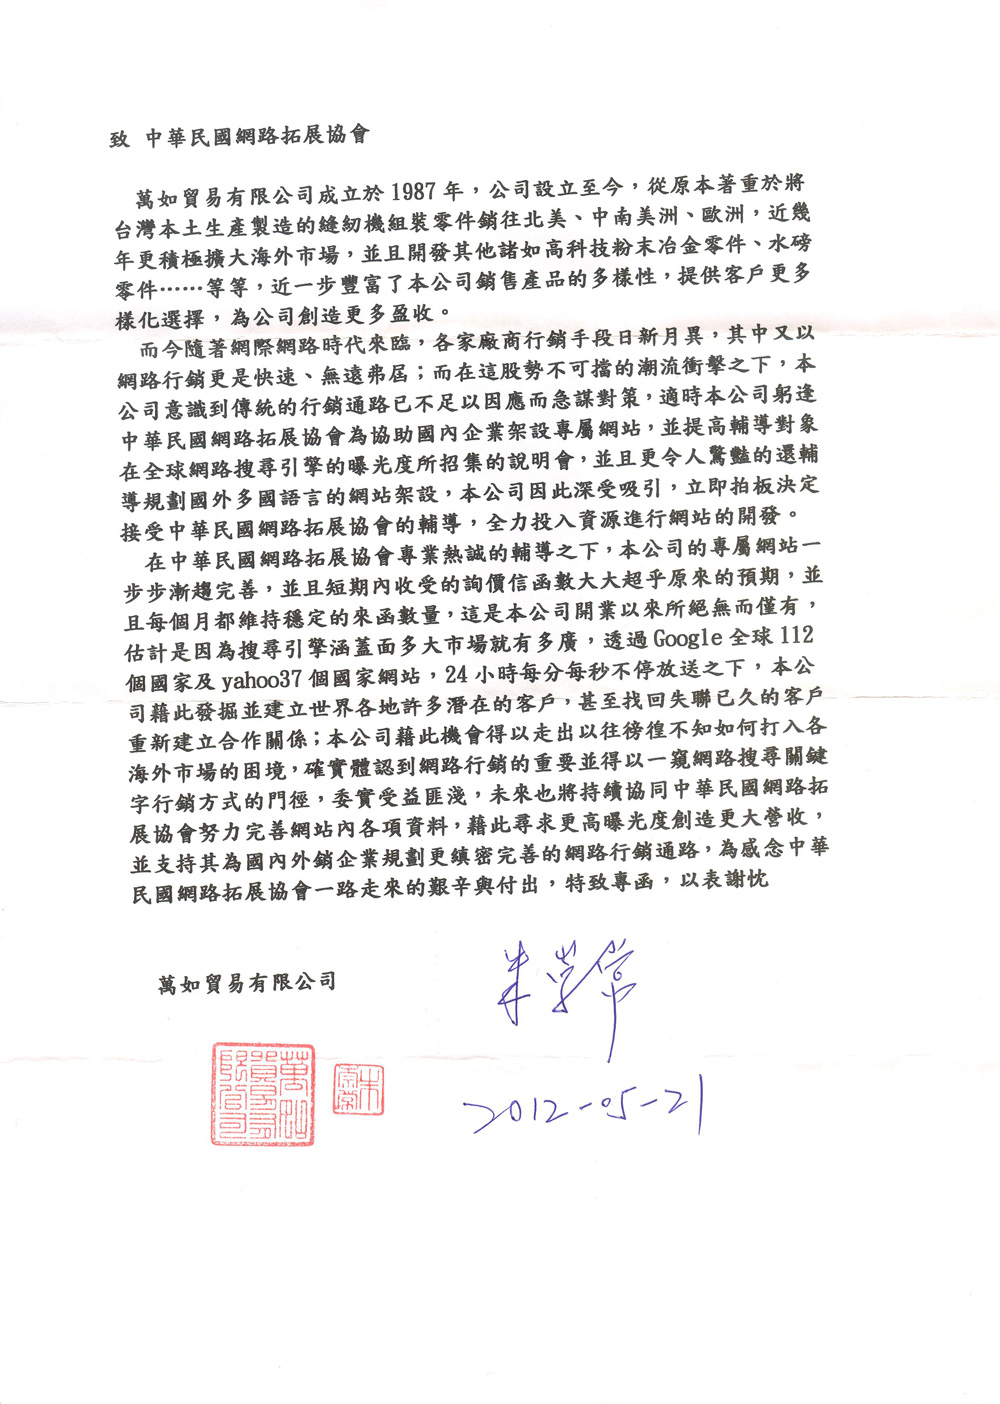 致 中華民國網路拓展協會
萬如貿易有限公司成立於 1987 年，公司設立至今，從原本著重於將
台灣本土生產製造的縫紉機組裝零件銷往北美、中南美洲、歐洲，近幾
年更積極擴大海外市場，並且開發其他諸如高科技粉末冶金零件、水磅
零件……等等，近一步豐富了本公司銷售產品的多樣性，提供客戶更多
樣化選擇，為公司創造更多盈收。
而今隨著網際網路時代來臨，各家廠商行銷手段日新月異，其中又以
網路行銷更是快速、無遠弗屆；而在這股勢不可擋的潮流衝擊之下，本
公司意識到傳統的行銷通路已不足以因應而急謀對策，適時本公司躬逢
中華民國網路拓展協會為協助國內企業架設專屬網站，並提高輔導對象
在全球網路搜尋引擎的曝光度所招集的說明會，並且更令人驚豔的還輔
導規劃國外多國語言的網站架設，本公司因此深受吸引，立即拍板決定
接受中華民國網路拓展協會的輔導，全力投入資源進行網站的開發。
在中華民國網路拓展協會專業熱誠的輔導之下，本公司的專屬網站一
步步漸趨完善，並且短期內收受的詢價信函數大大超乎原來的預期，並
且每個月都維持穩定的來函數量，這是本公司開業以來所絕無而僅有，
估計是因為搜尋引擎涵蓋面多大市場就有多廣，透過 Google 全球 112
個國家及 yahoo37 個國家網站，24 小時每分每秒不停放送之下，本公
司藉此發掘並建立世界各地許多潛在的客戶，甚至找回失聯已久的客戶
重新建立合作關係；本公司藉此機會得以走出以往徬徨不知如何打入各
海外市場的困境，確實體認到網路行銷的重要並得以一窺網路搜尋關鍵
字行銷方式的門徑，委實受益匪淺，未來也將持續協同中華民國網路拓
展協會努力完善網站內各項資料，藉此尋求更高曝光度創造更大營收，
並支持其為國內外銷企業規劃更縝密完善的網路行銷通路，為感念中華
民國網路拓展協會一路走來的艱辛與付出，特致專函，以表謝忱
萬如貿易有限公司
萬如貿易有限公司
2012-05-21